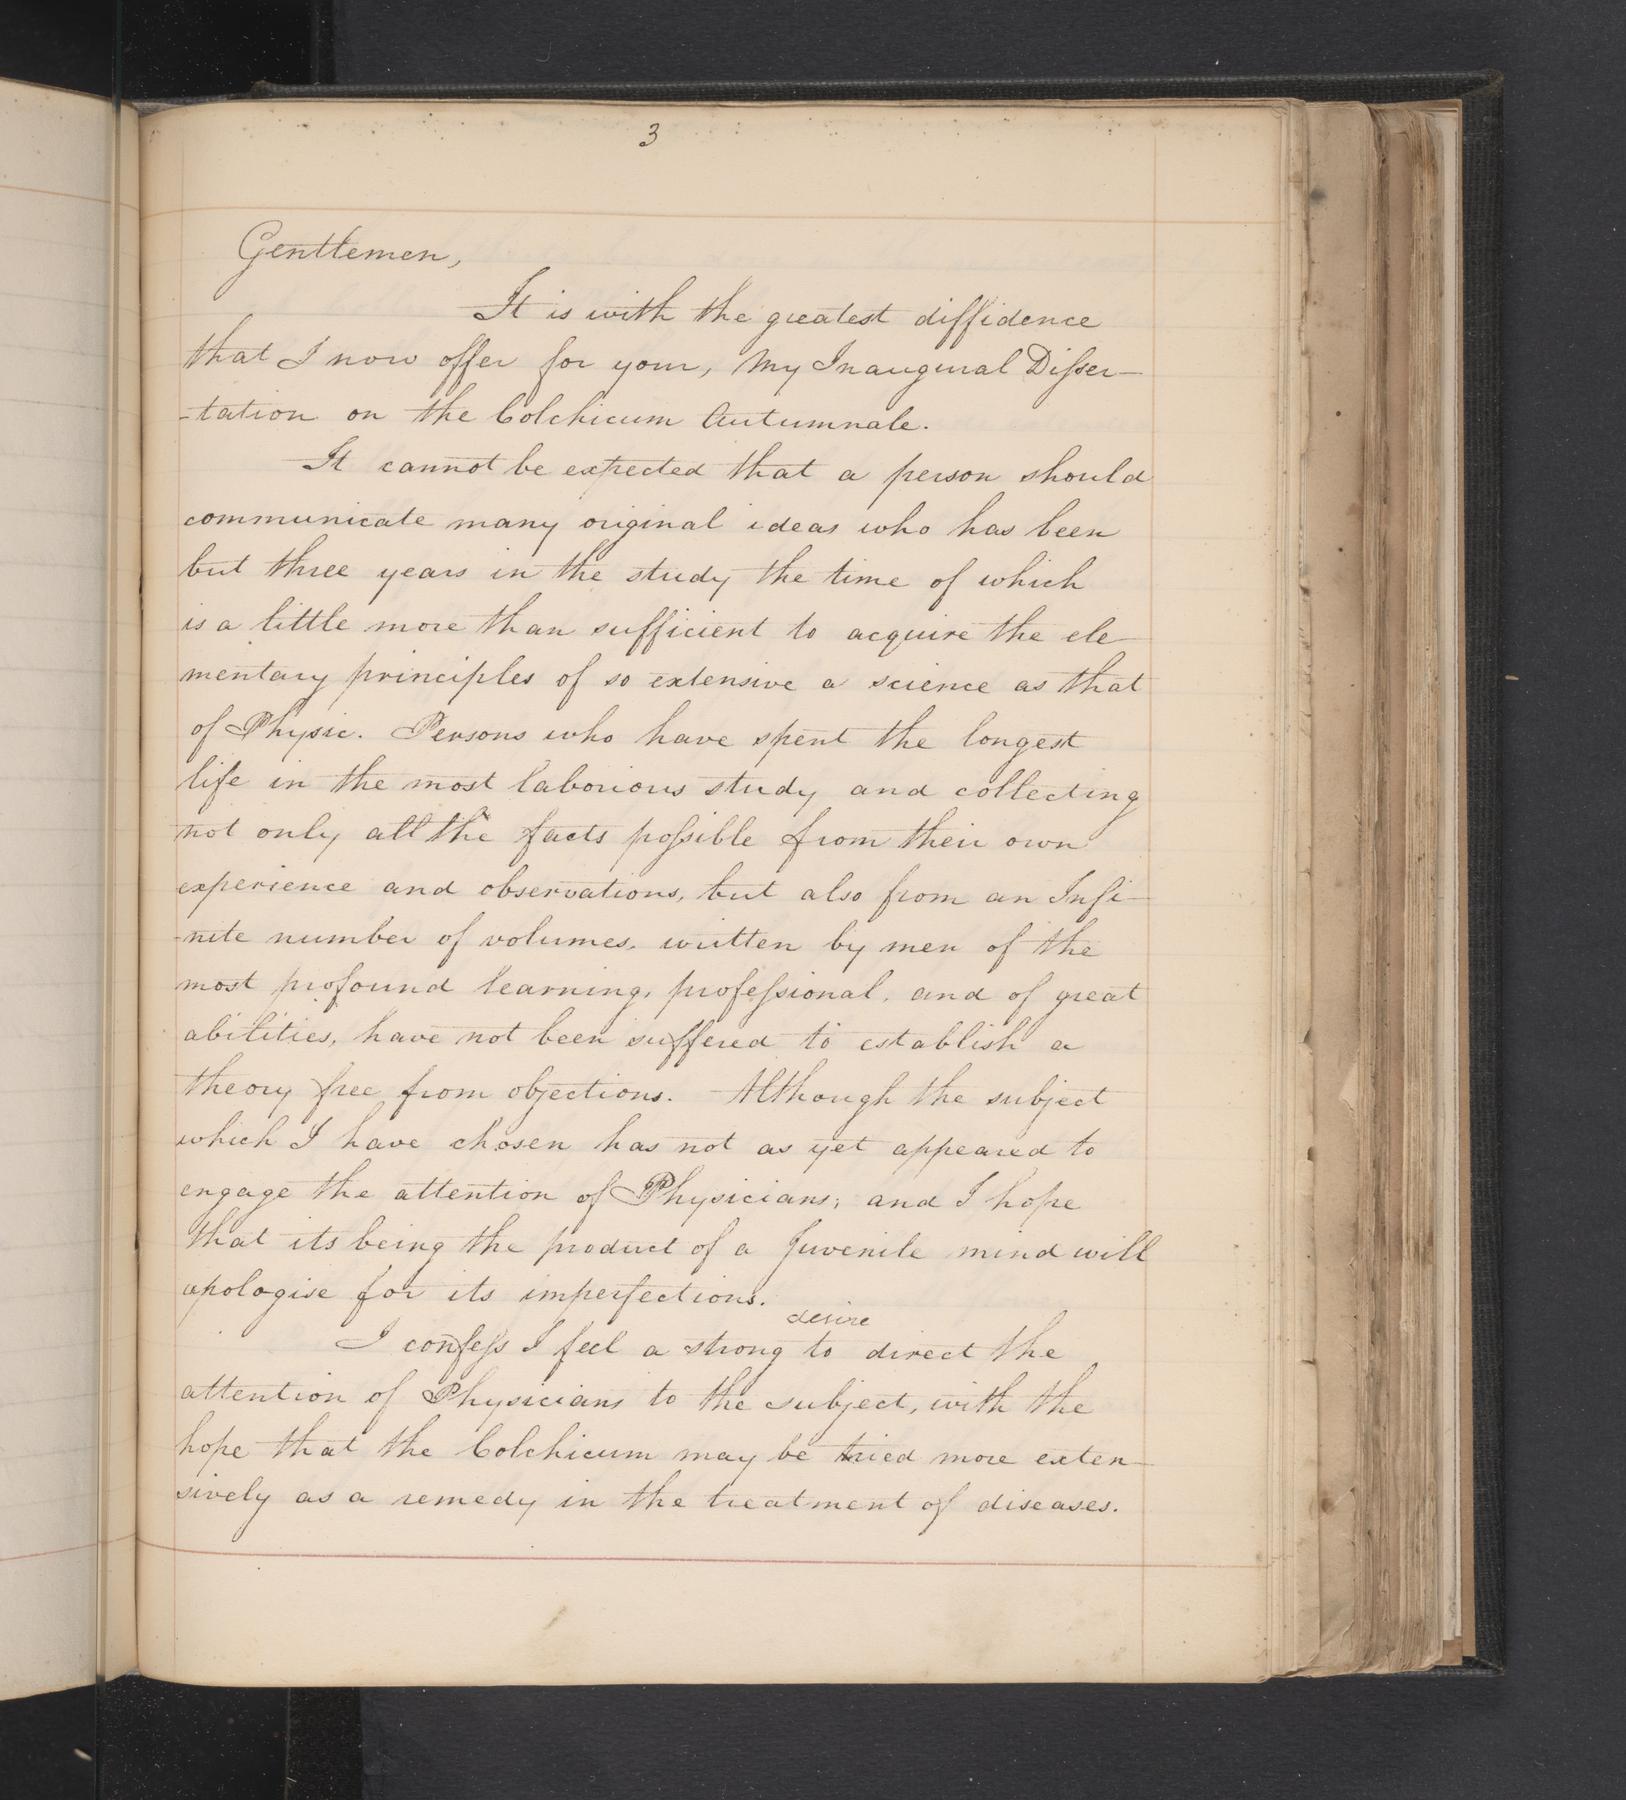 3
Gentlemen,
It is with the greatest diffidence
that I now offer for your, My Inaugural Disser-
-tation on the Colchicum Autumnale.
It cannot be expected that a person should
communicate many original ideas who has been
but three years in the study the time of which
is a little more than sufficient to acquire the ele-
mentary principles of so extensive a science as that
of Physic. Persons who have spent the longest
life in the most laborious study and collecting
not only all the facts possible from their own
experience and observations, but also from an Infi-
-nite number of volumes, written by men of the
most profound learning, professional, and of great
abilities, have not been suffered to establish a
theory free from objections. Although the subject
which I have chosen has not as yet appeared to
engage the attention of Physicians; and I hope
that its being the product of a Juvenile mind will
apologise for its imperfections.
desire
I confess I feel a strong to direct the
attention of Physicians to the subject, with the
hope that the Colchicum may be tried more exten-
sively as a remedy in the treatment of diseases.